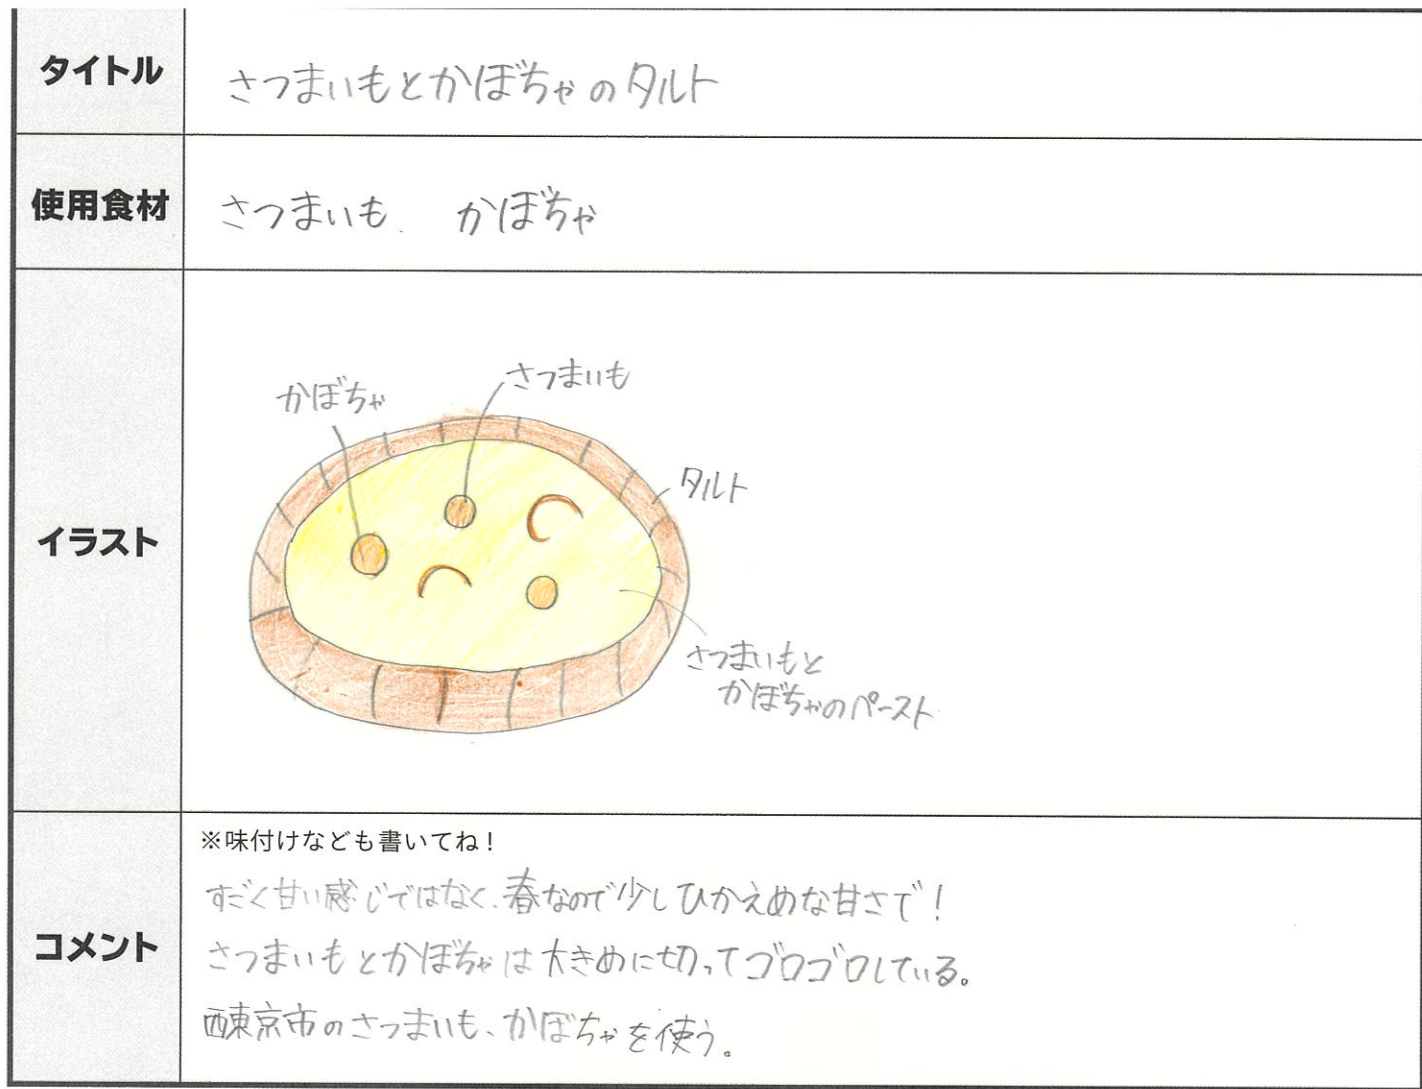 タイトル
さつまいもとかぼちゃのタルト
使用食材
さつまいも、かぼちゃ
イラスト
かぼちゃ
さつまいも
タルト
さつまいもと
かぼちゃのペースト
コメント
※味付けなども書いてね！
すごく甘い感じではなく、春なので少しひかえめな甘さで！
さつまいもとかぼちゃは大きめに切ってゴロゴロしている。
西東京市のさつまいも、かぼちゃを使う。